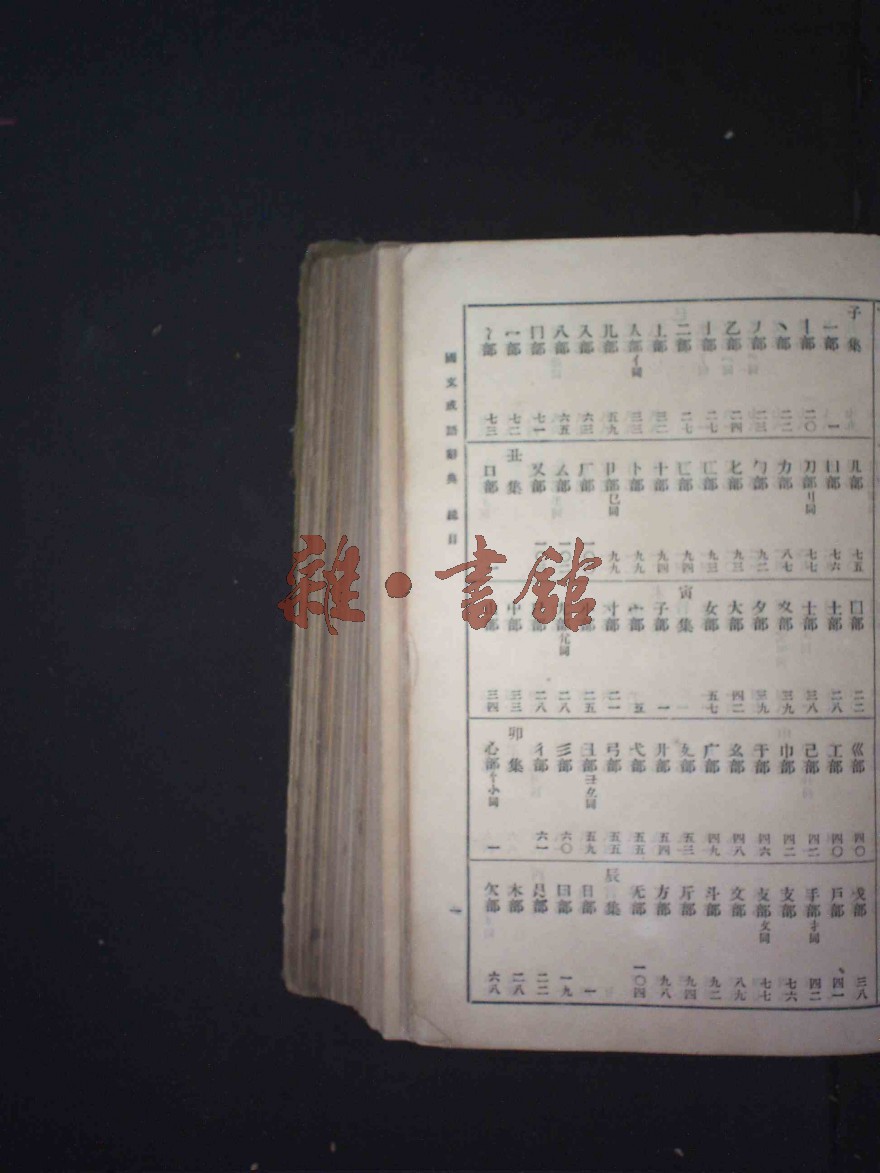 子集
一部 一
丨部 二〇
丶部 二二
丿部 二三
乙部 二四
亅部 二七
二部 二七
亠部 三二
人部亻同 三三
儿部 五九
入部 六三
八部 六五
冂部 七一
冖部 七二
冫部 七三
几部 七五
凵部 七六
刀部刂同 七七
力部 八七
勹部 九二
匕部 九三
匚部 九三
匸部 九四
十部 九四
卜部 九九
卩部㔾同 九九
厂部
厶部
又部
丑集
口部
囗部 二二
土部 二八
士部 三八
夂部 三九
夕部 三九
大部 四二
女部 五七
寅集
子部 一
宀部 五
寸部 二一
部 二五
部 二八
部 二八
屮部 三三
部 三四
巛部 四〇
工部 四〇
己部 四二
巾部 四二
干部 四六
幺部 四八
广部 四九
廴部 五三
廾部 五四
弋部 五五
弓部 五五
彐部彑同 五九
彡部 六〇
彳部 六一
卯集
心部忄㣺同 一
戈部 三八
戶部 四一
手部扌同 四二
支部 七六
攴部攵同 七七
文部 八九
斗部 九二
斤部 九四
方部 九八
无部 一〇四
辰集
日部 一
曰部 一九
月部 二二
木部 二八
欠部 六八
國文成語辭典 總目
一
雜·書館